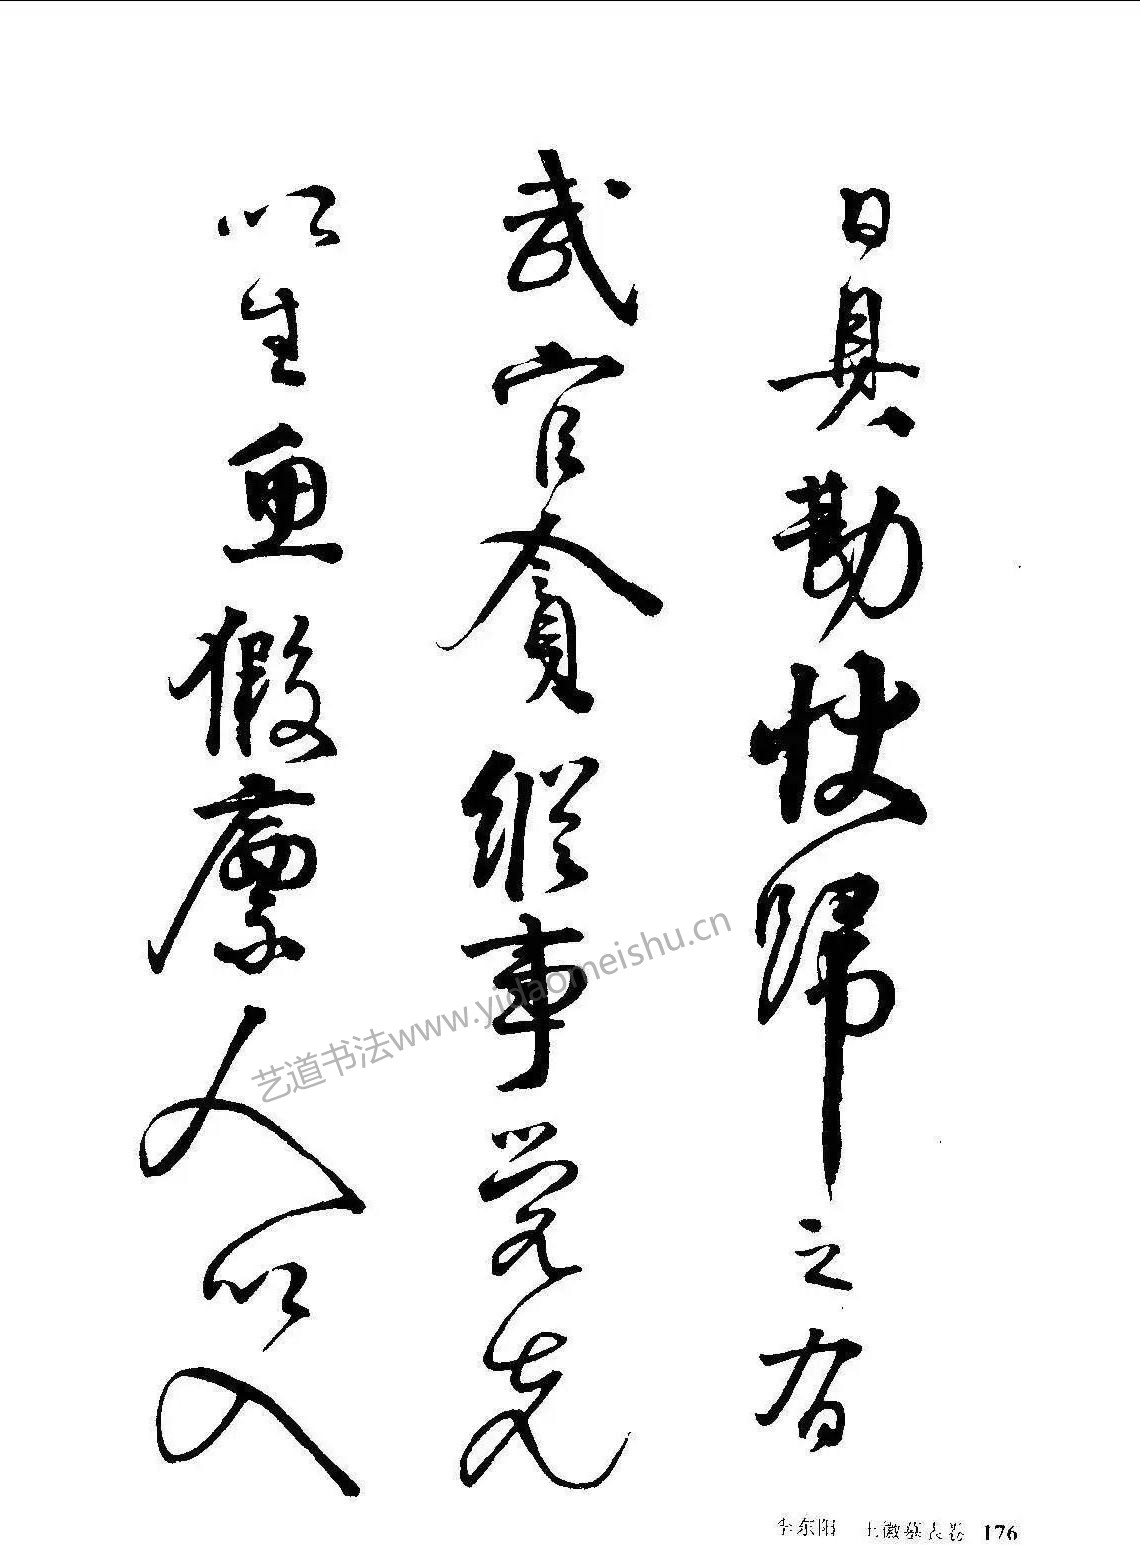 日具勘牍歸之有
武官貪縱事覺先
以生魚假廪人以入
艺道书法www.yidaomeishu.cn
李东阳 王徽墓表卷 176